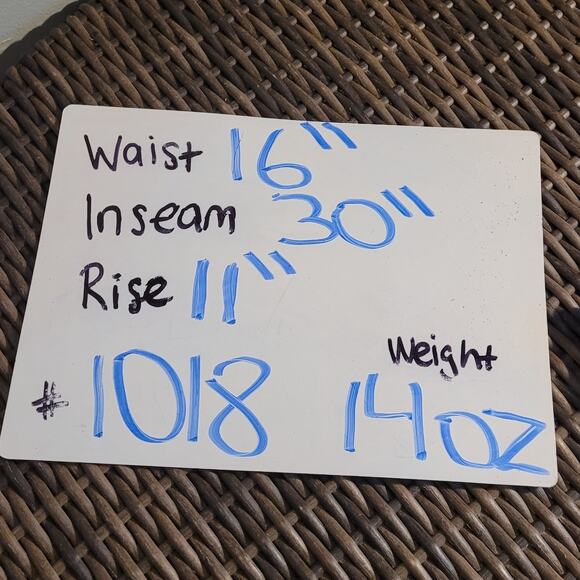 Waist 16"
Inseam 30"
Rise 11"
Weight
# 1018 14oz